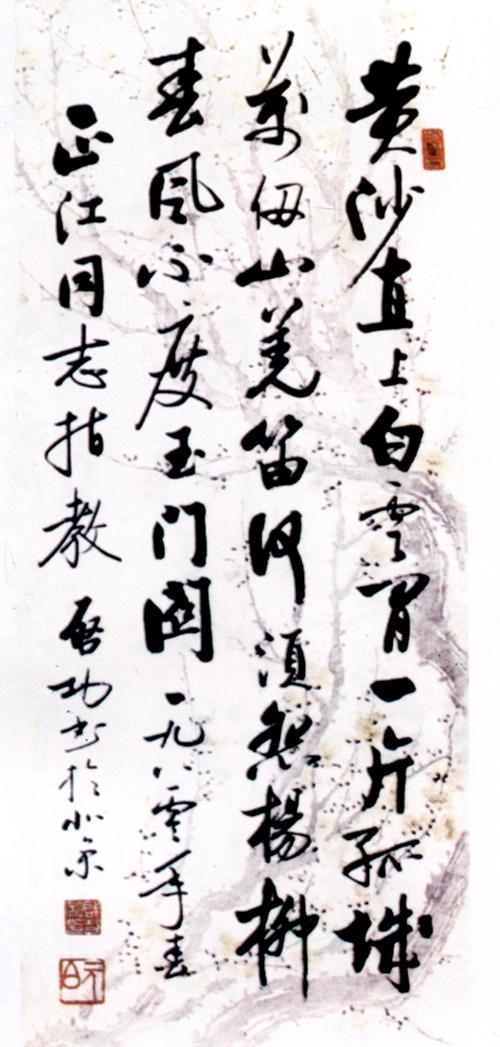 黄沙直上白雲间一片孤城
萬仞山羌笛何須怨楊柳
春风不度玉门關一九八零年春
正江同志指教 启功书於北京